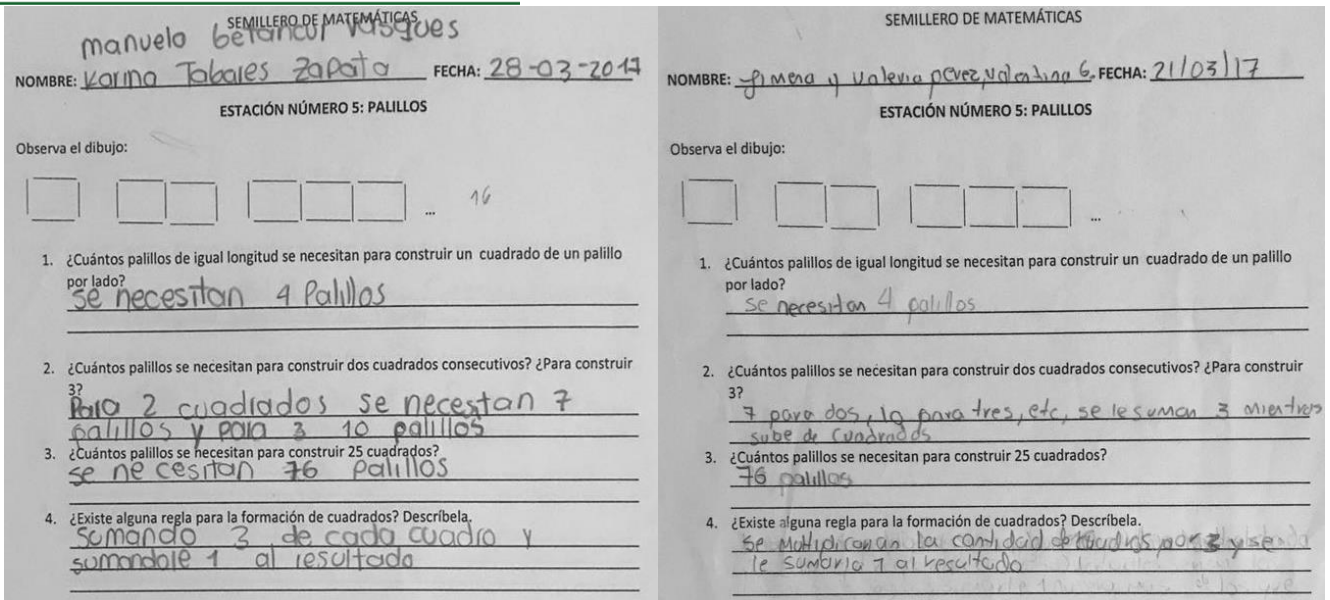 SEMILLERO DE MATEMÁTICAS
manuelo betancur vasques
NOMBRE: Karina Tabares Zapata FECHA: 28-03-2017
ESTACIÓN NÚMERO 5: PALILLOS
Observa el dibujo:
... 16
1. ¿Cuántos palillos de igual longitud se necesitan para construir un cuadrado de un palillo
por lado?
se necesitan 4 Palillos
2. ¿Cuántos palillos se necesitan para construir dos cuadrados consecutivos? ¿Para construir
3?
Para 2 cuadrados se necestan 7
palillos y para 3 10 palillos
3. ¿Cuántos palillos se necesitan para construir 25 cuadrados?
se ne cesitan 76 palillos
4. ¿Existe alguna regla para la formación de cuadrados? Descríbela.
Sumando 3 de cada cuadro y
sumandole 1 al resultado
SEMILLERO DE MATEMÁTICAS
NOMBRE: y Valeria perez, valentina G. FECHA: 21/03/17
ESTACIÓN NÚMERO 5: PALILLOS
Observa el dibujo:
...
1. ¿Cuántos palillos de igual longitud se necesitan para construir un cuadrado de un palillo
por lado?
se necesitan 4 palillos
2. ¿Cuántos palillos se necesitan para construir dos cuadrados consecutivos? ¿Para construir
3?
7 para dos, 10 para tres, etc, se le suman 3 mientras
sube de cuadrados
3. ¿Cuántos palillos se necesitan para construir 25 cuadrados?
76 palillos
4. ¿Existe alguna regla para la formación de cuadrados? Descríbela.
se la cantidad de cuadros por 3 y se
le sumaria 1 al resultado